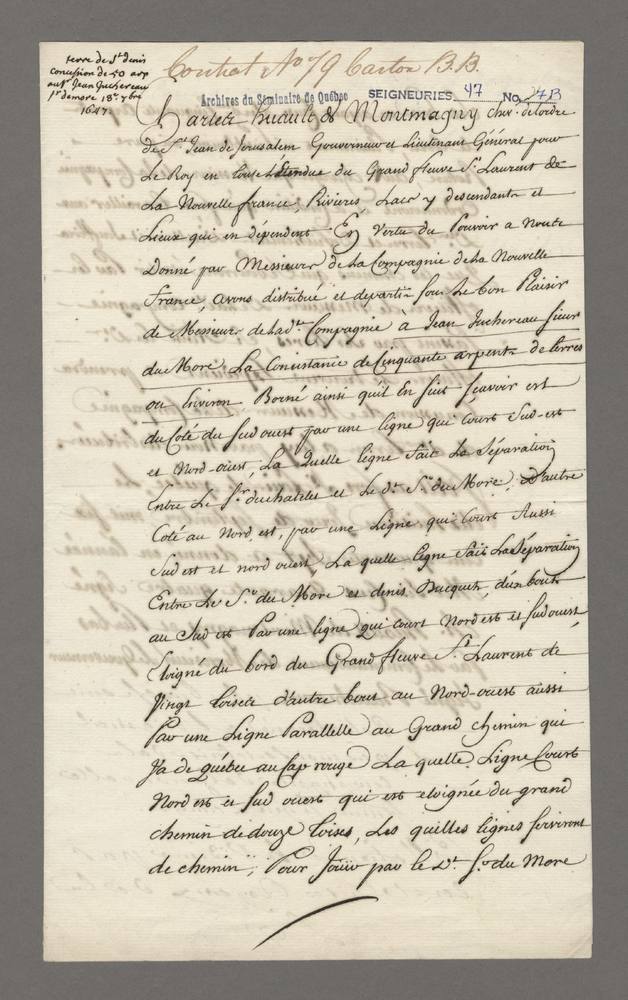 terre de St denis
concession de 50 arp
au Sr Jean Juchereau
Sr de more 18e 7bre
1647.
Contrat No 79 Carton B.B.
Archives du Séminaire de Québec SEIGNEURIES 47 No 7B
Charlets huault de Montmagny Cher. de lordre
De St Jean de Jerusalem Gouverneur et Lieutenant Général pour
Le Roy en toute L'étendue du Grand fleuve St Laurent de
La Nouvelle france, Rivieres, Lacs y descendants et
Lieux qui en dépendent En Vertu du Pouvoir a Nous
Donné par Messieurs de la Compagnie de la Nouvelle
France, avons distribué et departi sous le bon Plaisir
de Messieurs de lade. Compagnie à Jean Juchereau sieur
du More La Consistance de Cinquante arpents de terres
ou Environ Borné ainsi quil En suit scavoir est
du Coté du sud ouest par une ligne qui court Sud-est
et Nord-ouest, La Quelle ligne fait La Séparation
Entre Le Sr. duchatelets et Le dt. Sr. du More; D'autre
Coté au Nord est, par une Ligne qui Court Aussi
Sud est et nord ouest La quelle ligne fait La Séparation
Entre Le Sr. du More et denis Duquets, d'un bout
au Sud est Par une ligne qui court Nord est et sud ouest
Eloigné du bord du Grand fleuve St. Laurent de
Vingt toises d'autre bout au Nord-ouest aussi
Par une Ligne Parallelle au Grand chemin qui
Va de Québec au Cap rouge La quelle Ligne Court
Nord est et Sud ouest qui est eloignée du grand
chemin de douze toises, Les quelles lignes serviront
de chemin; Pour Jouir par le Dt. Sr. du More